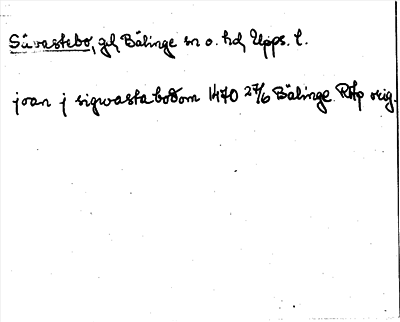 Sävastebo, gd, Bälinge sn o. hd, Upps. l.
joan j sigwastabodom 1470 27/6 Bälinge RAp orig.